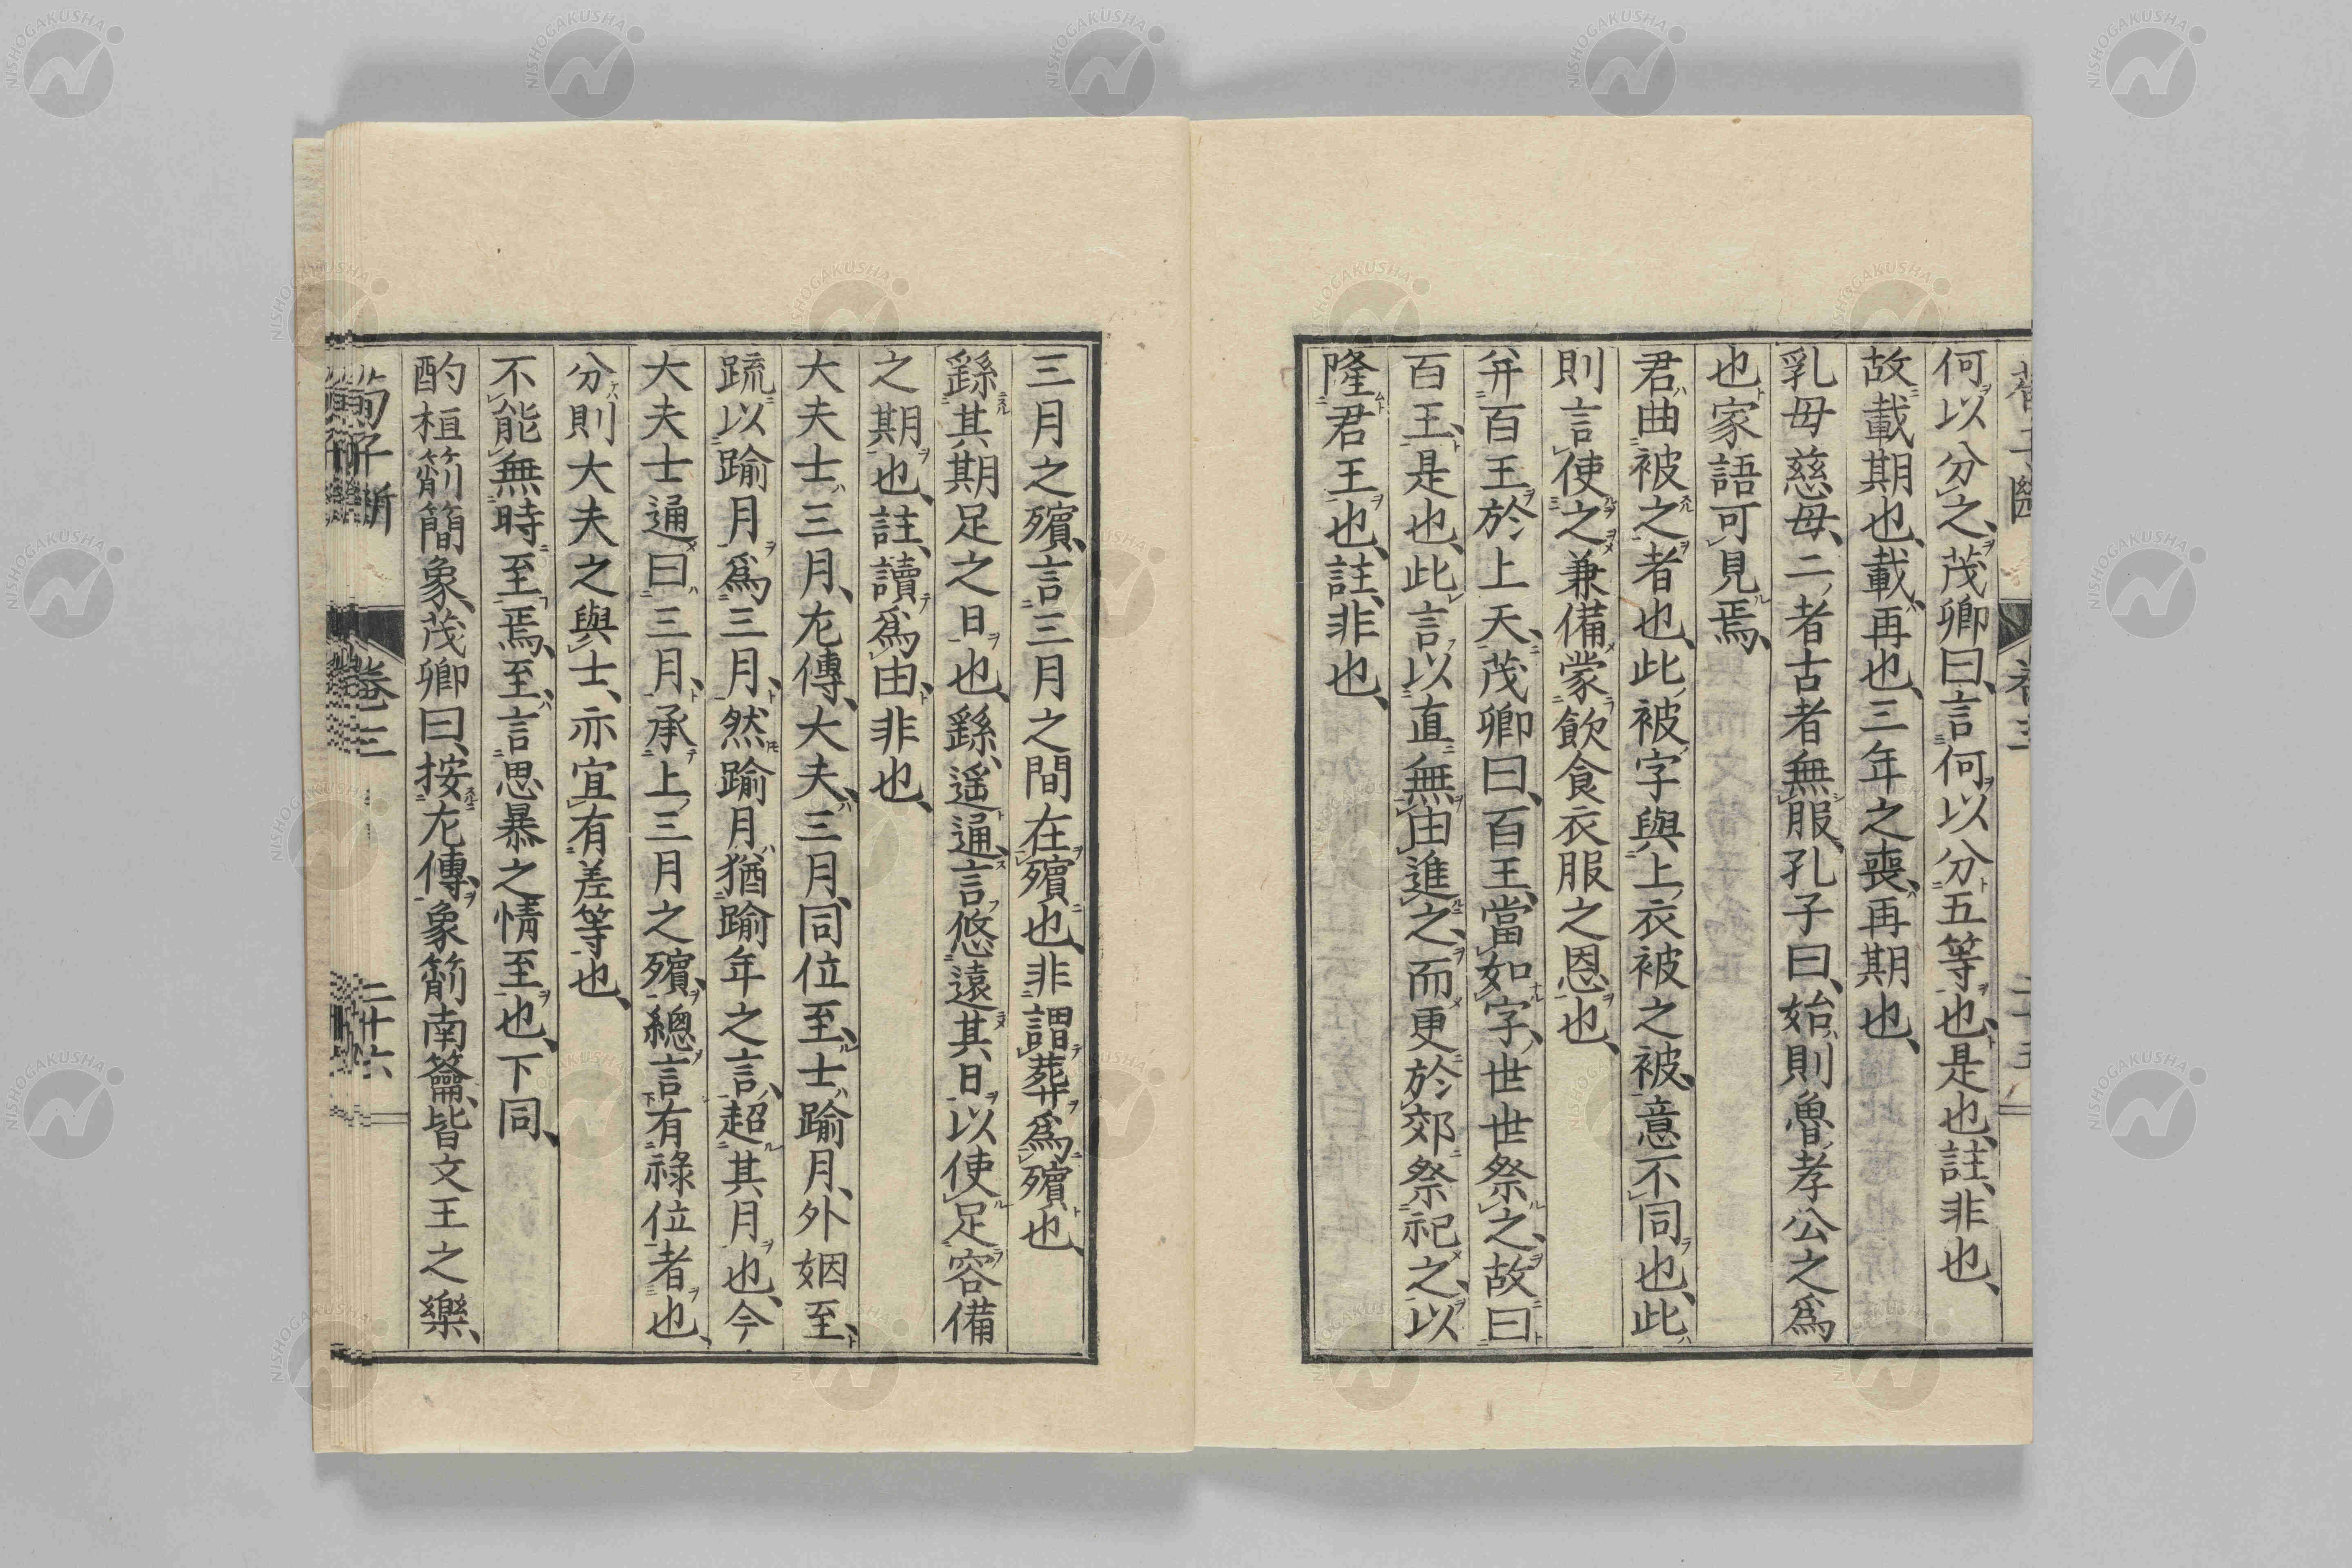 何以分之、茂卿曰、言何以分五等也、是也、註、非也、
故載期也、載、再也、三年之喪、再期也、
乳母慈母、二者古者無服、孔子曰、始、則魯孝公之爲
也、家語可見焉、
君曲被之者也、此被字與上衣被之被、意不同也、此
則言使之兼備蒙飲食衣服之恩也、
并百王於上天、茂卿曰、百王、當如字、世世祭之、故曰
百王、是也、此言以直無由進之、而更於郊祭祀之、以
隆君王也、註、非也、
三月之殯、言三月之間在殯也、非謂葬爲殯也、
繇其期足之日也、繇、遥通、言悠遠其日以使足容備
之期也、註、讀爲由、非也、
大夫士三月、左傳、大夫、三月、同位至、士、踰月、外姻至、
䟽以踰月爲三月、然踰月猶踰年之言、超其月也、今
大夫士通曰三月、承上三月之殯、總言有祿位者也、
分則大夫之與士、亦宜有差等也、
不能無時至焉、至、言思暴之情至也、下同、
酌桓箾簡象、茂卿曰、按左傳、象箾南籥、皆文王之樂、
荀子斷
卷三
二十六
NISHOGAKUSHA